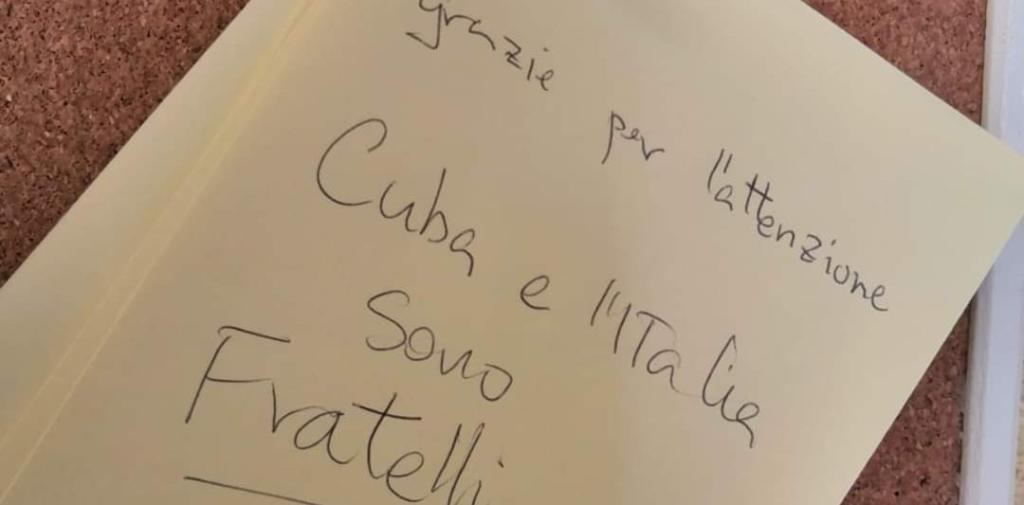 grazie per l'attenzione
Cuba e l'Italia
sono
Fratelli